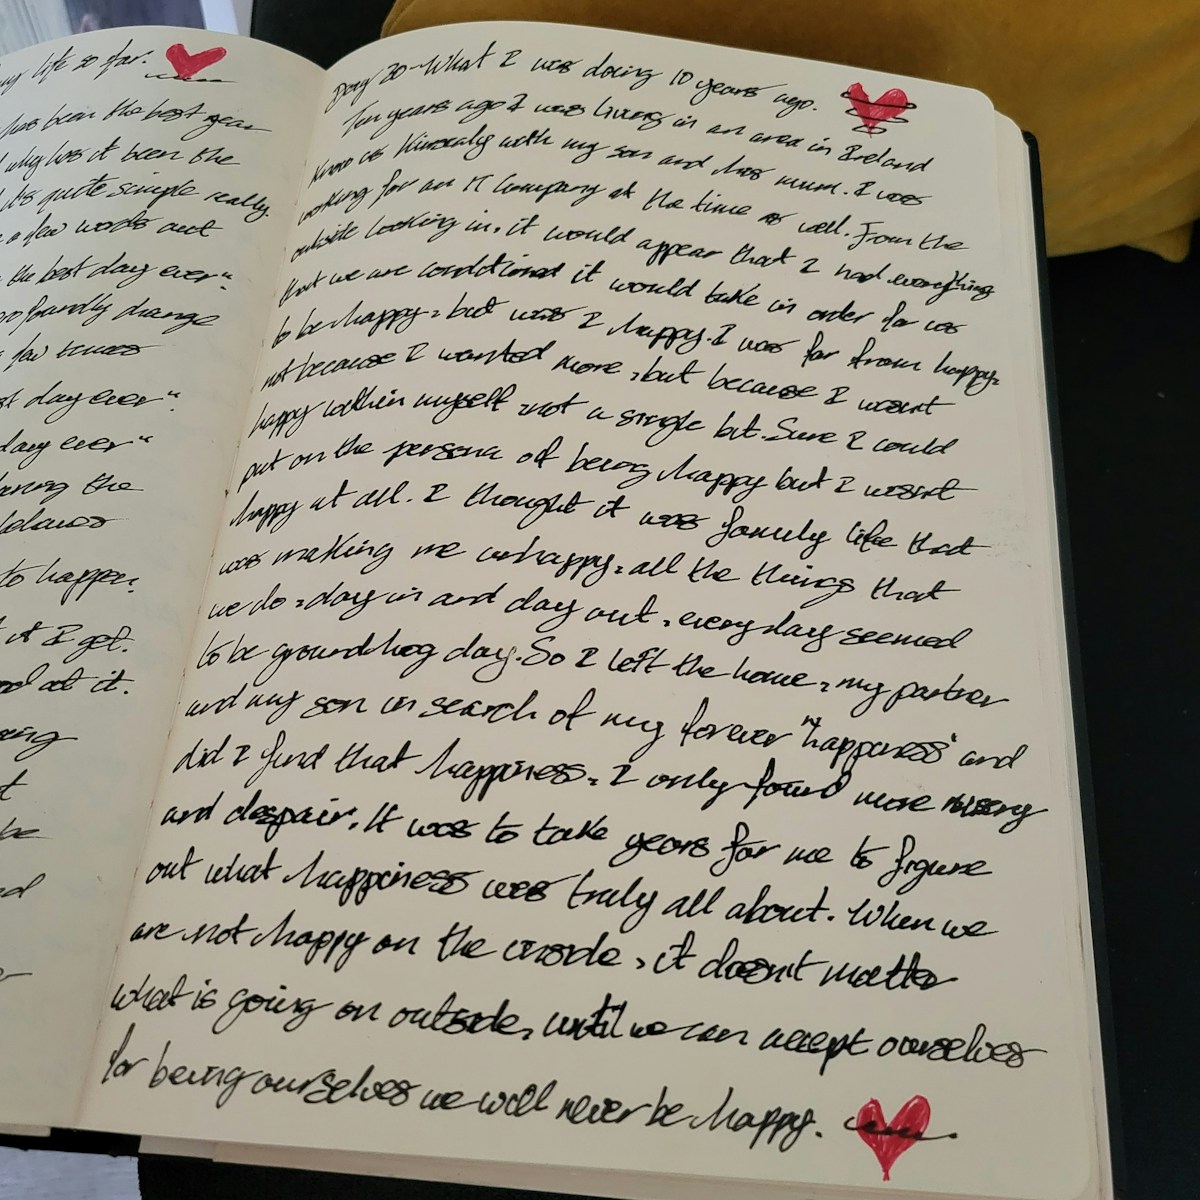 my life so far.
has been the best year
why has it been the
it's quite simple really.
a few words and
the best day ever".
profoundly change
few times
day ever".
day ever"
the
to happen.
it I get.
at it.
Day 20 - What I was doing 10 years ago.
Ten years ago I was living in an area in Ireland
know as Kinsealy with my son and his mum. I was
working for an IT Company at the time as well. From the
outside looking in, it would appear that I had everything
that we are conditioned it would take in order for us
to be happy, but was I happy. I was far from happy,
not because I wanted more, but because I wasn't
happy within myself, not a single bit. Sure I could
put on the persona of being happy but I wasn't
happy at all. I thought it was family life that
was making me unhappy, all the things that
we do, day in and day out, every day seemed
to be ground hog day. So I left the home, my partner
and my son in search of my forever "happiness" and
did I find that happiness, I only found more misery
and despair. It was to take years for me to figure
out what happiness was truly all about. When we
are not happy on the inside, it doesn't matter
what is going on outside, until we can accept ourselves
for being ourselves we will never be happy.